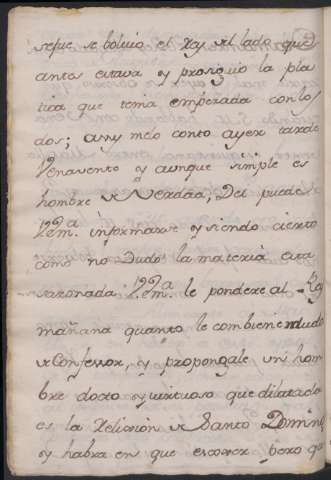 sepue se boluio el Rey al lado que
antes estava y prosiguio la pla
tica que tenia empezada con lo
dos; a my me lo conto ayer tarde
Venavente y aunque simple es
hombre de Verdad, Del puede
V.Em.ª informarse y siendo cierto
como no Dudo la materia esta
sazonada. V.Em.ª le pondere al Rey
mañana quanto le combiene mudar
de Confessor, y propongale un hom
bre docto y virtuoso que dilatada
es la Religion de Santo Domin
y habra en que escojer pero que